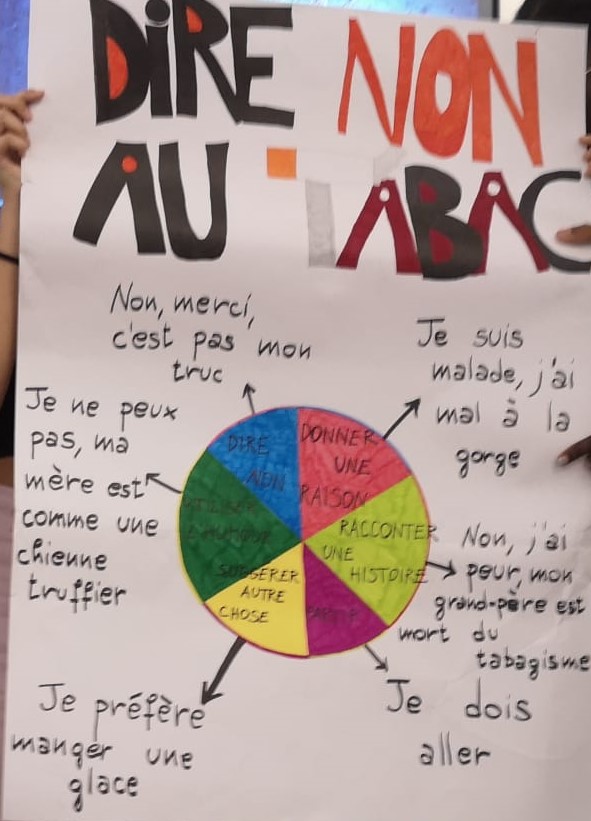 DIRE NON
AU TABAC
Non, merci,
c'est pas mon
truc
Je suis
malade, j'ai
mal à la
gorge
Je ne peux
pas, ma
mère est
comme une
chienne
truffier
DIRE
NON
DONNER
UNE
RAISON
UTILISER
L'HUMOUR
RACCONTER
UNE
HISTOIRE
SUGGERER
AUTRE
CHOSE
PARTIR
Non, j'ai
peur, mon
grand-père est
mort du
tabagisme
Je préfère
manger une
glace
Je dois
aller